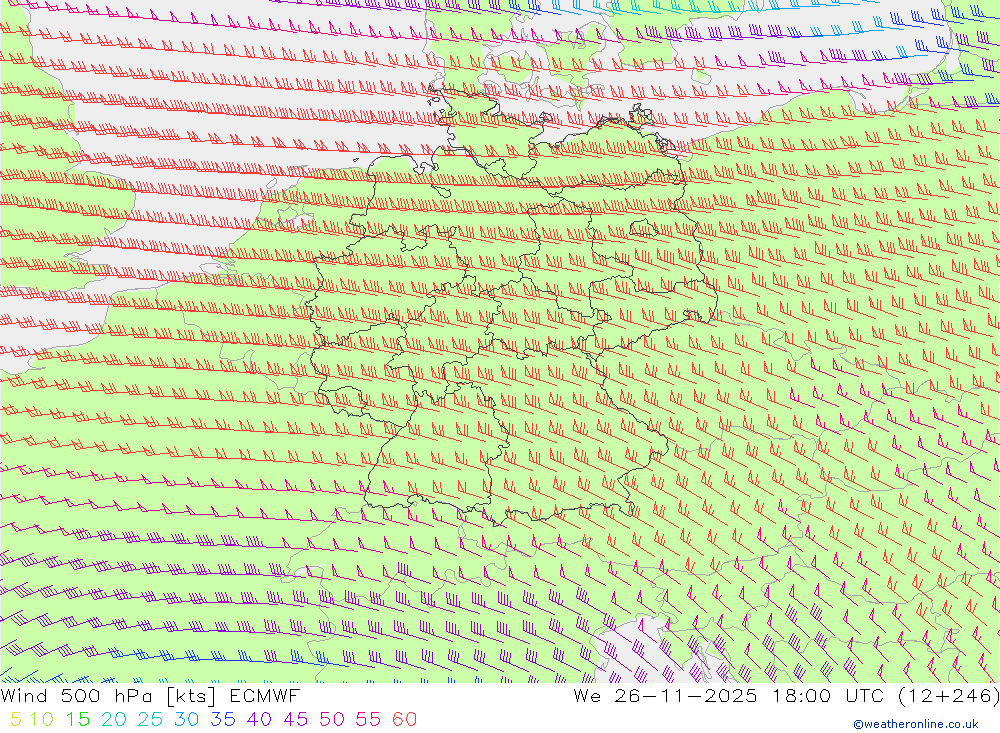 Wind 500 hPa [kts] ECMWF We 26-11-2025 18:00 UTC (12+246)
5 10 15 20 25 30 35 40 45 50 55 60
©weatheronline.co.uk